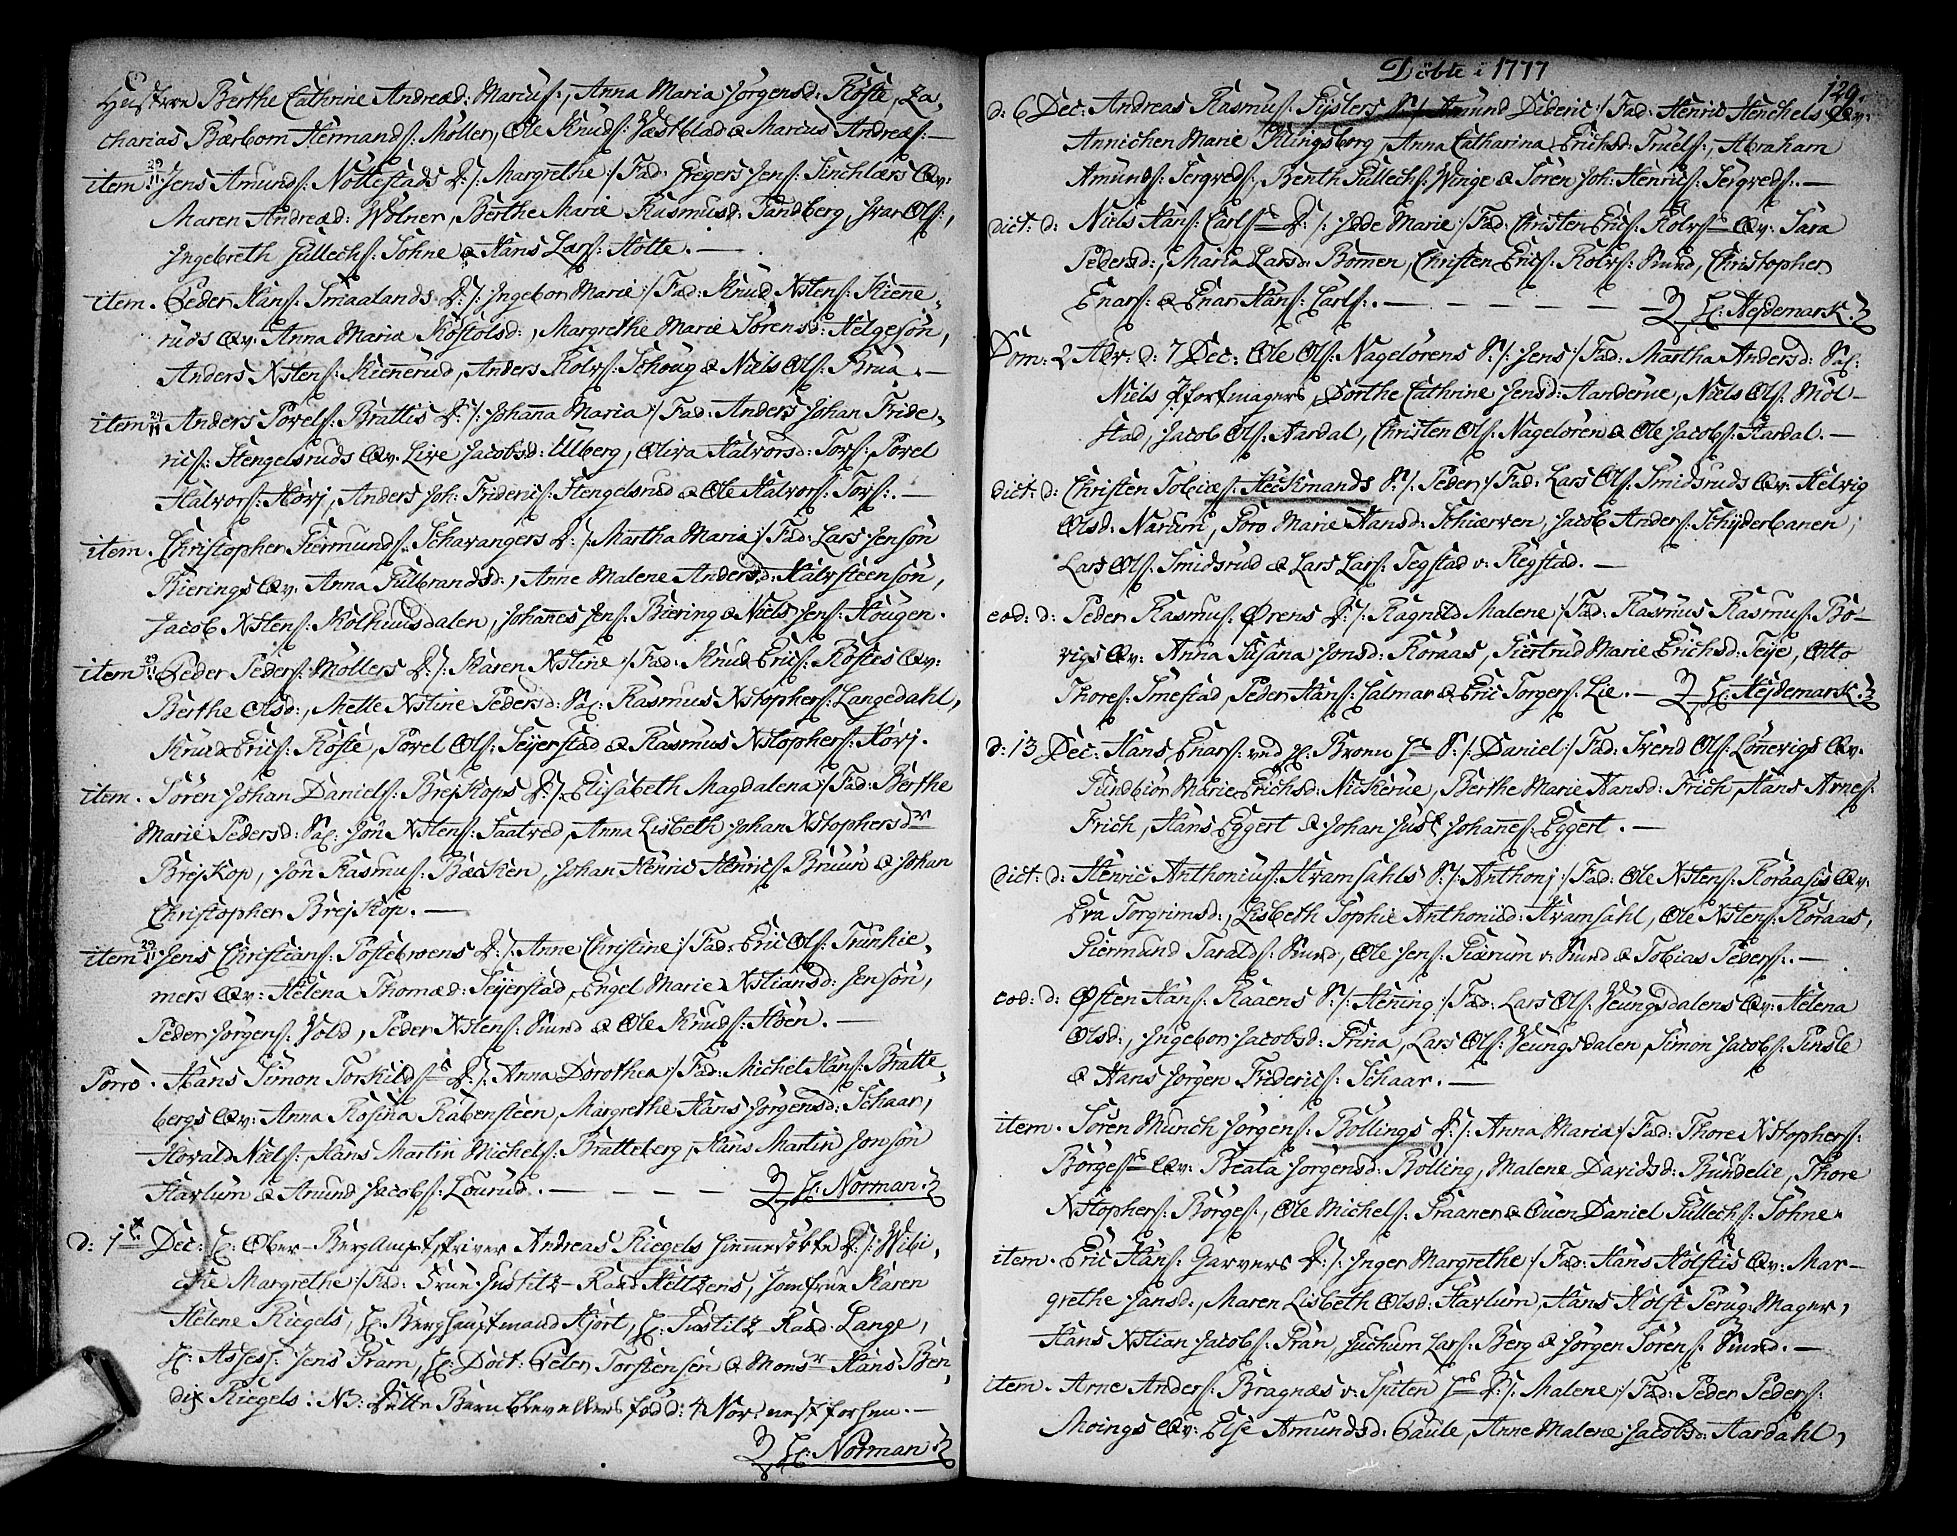 Hustrue Berthe Cathrine Andreæd: Marcus:, Anna Maria Jørgensd: Røste, Za-
charias Bærbom Hermands: Møller, Ole Knuds: Væstblad & Marcus Andreæs: —
item 29/11 Jens Amunds: Nøttestads D: /: Margrethe :/ Fad: Gregers Jens: Sinchlærs Qv:
Maren Andreæd: Wolner, Berthe Marie Rasmusd: Sandberg, Ivar Ols:,
Ingebreth Gullechs: Sohne & Hans Lars: Holte. —
item. Peder Hans: Smaalands D: /: Ingebor Marie :/ Fad: Knud Xstens: Kienne-
ruds Qv: Anna Maria Køstolsd:, Margrethe Marie Sørensd: Helgesøn,
Anders Xstens: Kiennerud, Anders Rolvs: Schoug & Niels Ols: Brua. —
item 29/11 Anders Povels: Brattis D: /: Johanna Maria :/ Fad: Anders Johan Fride-
rics: Stengelsruds Qv: Live Jacobsd: Ulberg, Oliva Halvorsd: Tors: Povel
Halvors: Hørj, Anders Joh: Friderics: Stengelsrud & Ole Halvors: Tors: —
item. Christopher Giermunds: Schavangers D: /: Martha Maria :/ Fad: Lars Jensøn
Bierings Qv: Anna Gulbrandsd:, Anne Malene Andersd: Halvsteensøn,
Jacob Xstens: Kolhuusdalen, Johannes Jens: Biering & Niels Jens: Hougen.
item 29/11 Peder Peders: Møllers D: /: Karen Xstine :/ Fad: Knud Erics: Røstes Qv:
Berthe Olsd:, Mette Xstine Pedersd: Sal: Rasmus Xstophers: Langedahl,
Knud Erics: Røste, Povel Ols: Sejerstad & Rasmus Xstophers: Hørj.
item. Søren Johan Daniels: Brejskops D: /: Elisabeth Magdalena :/ Fad: Berthe
Marie Pedersd: Sal: Jøn Xstens: Saatved, Anna Lisbeth Johan Xstophersdr
Brejskop, Jøn Rasmus: Backen, Johan Henric Henrics: Bruun & Johan
Christopher Brejskop. —
item 29/11 Jens Christians: Postebroens D: /: Anne Christine :/ Fad: Eric Ols: Trunkie-
mers Qv: Helena Thomæd: Sejerstad, Engel Marie Xstiansd: Jensøn,
Peder Jørgens: Vold, Peder Xstens: Sund & Ole Knuds: Høen. —
Porro. Hans Simon Torkilds: D: /: Anna Dorothea :/ Fad: Michel Hans: Bratte-
bergs Qv: Anna Rosina Rabensteen, Margrethe Hans Jørgensd: Schaar,
Hovald Niels:, Hans Martin Michels: Bratteberg, Hans Martin Jonsøn
Harlum & Anund Jacobs: Lourud. — — — — H: Norman.
d: 1te Dec: H: Ober-Bergamptskriver Andreas Riegels Hiemmedøbte D: /: Wibi-
che Margrethe :/ Fad: Frue Justitz-Raad Heltzens, Jomfrue Karen
Helene Riegels, H: Berghauptmand Hjort, H: Justitz-Raad Lange,
H: Assess: Jens Pram, H: Doct: Peter Torstensen & Monsr Hans Ben-
dix Riegels. NB: Dette Barn blev ellers fød d: 4 Nov: nestforhen. —
H: Norman
Døbte i 1777
129.
d: 6 Dec: Andreas Rasmus: Gislers S: /: Amund Dideric :/ Fad: Henric Henchels Qv:
Annichen Marie Klingsborg, Anna Catharina Erichsd: Truels:, Abraham
Amunds: Sergreds:, Benth Gullechs: Winge & Søren Joh: Henrics: Sergreds: —
dict: d: Niels Hans: Carls: D: /: Jede Marie :/ Fad: Christen Erics: Rolvs: Qv: Sara
Pedersd:, Maria Larsd: Bomen, Christen Erics: Rolvs: Sund, Christopher
Enars: & Enar Hans: Carls: — — — — — H: Hejdemark.
Dom: 2 Adv: d: 7 Dec: Ole Ols: Nagelørens S: /: Jens :/ Fad: Martha Andersd: Sal:
Niels Pforfmagers, Dorthe Cathrine Jensd: Aanderue, Niels Ols: Møl-
stad, Jacob Ols: Aardal, Christen Ols: Nageløren & Ole Jacobs: Aardal. —
dict: d: Christen Tobiæs: Heckmands S: /: Peder :/ Fad: Lars Ols: Smidsruds Qv: Helvig
Olsd: Narum, Goro Marie Hansd: Schiærven, Jacob Anders: Schyderbanen,
Lars Ols: Smidsrud & Lars Lars: Segstad v: Regstad. —
eod: d: Peder Rasmus: Ørens D: /: Ragnild Malene :/ Fad: Rasmus Rasmus: Bo-
rigs Qv: Anna Susana Jonsd: Roraas, Giertrud Marie Erichsd: Seje, Otto
Thores: Smestad, Peder Hans: Salmar & Eric Torgers: Lie. — H: Hejdemark.
d: 13 Dec: Hans Enars: ved H: Broen Hs S: /: Daniel :/ Fad: Svend Ols: Lønevigs Qv:
Gundbior Marie Erichsd: Nickerue, Berthe Marie Hansd: Frich, Hans Arnes:
Frich, Hans Eggert & Johan Just Johannes: Eggert. —
dict: d: Henric Anthonius: Hvamsahls S: /: Anthonj :/ Fad: Ole Xstens: Roraasis Qv:
Eva Torgrimsd:, Lisbeth Sophie Anthoniid: Hvamsahl, Ole Xstens: Roraas,
Giermund Taralds: Sund, Ole Jens: Giærum v: Sund & Tobias Peders: —
eod: d: Østen Hans: Raaens S: /: Hening :/ Fad: Lars Ols: Jeungsdalens Qv: Helena
Olsd:, Ingebor Jacobsd: Prina, Lars Ols: Jeungsdalen, Simon Jacobs: Gunsle
& Hans Jørgen Friderics: Schaar. —
item. Søren Munch Jørgens: Bøllings D: /: Anna Maria :/ Fad: Thore Xstophers:
Børges: Qv: Beata Jørgensd: Bølling, Malene Davidsd: Bundelie, Thore
Xstophers: Børges:, Ole Michels: Praaner & Ouen Daniel Gullechs: Sohne.
item. Eric Hans: Garvers D: /: Inger Margrethe :/ Fad: Hans Holstis Qv: Mar-
grethe Jansd:, Maren Lisbeth Olsd: Harlum, Hans Holst Perug: Mager,
Hans Xstian Jacobs: Pran, Juchum Lars: Berg & Jørgen Sørens: Sund. —
item. Arne Anders: Bragnæs v: Spiten Hs D: /: Malene :/ Fad: Peder Peders:
Moings Qv: Else Amundsd: Gaule, Anne Malene Jacobsd: Aardahl,